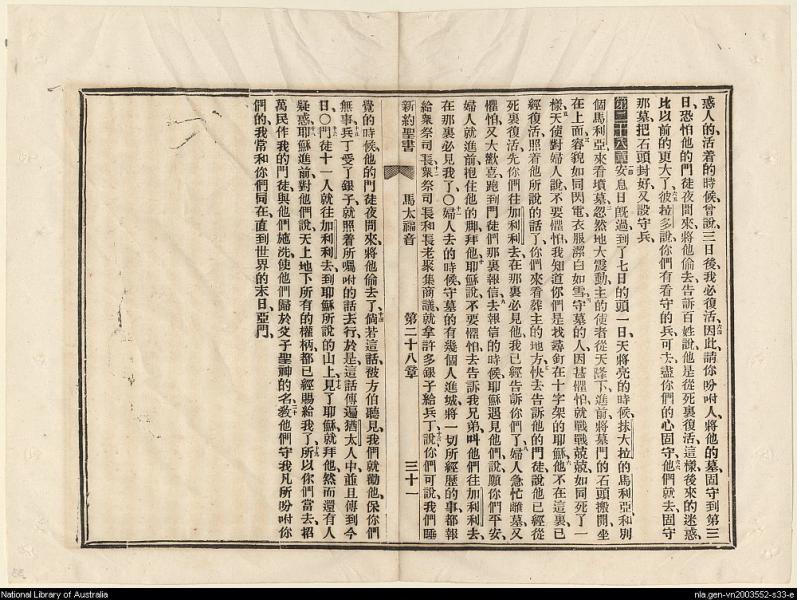 惑人的、活着的時候、曾說、三日後我必復活、因此請你吩咐人、將他的墓固守到第三
日、恐怕他的門徒夜間來、將他偷去、告訴百姓說、他是從死裏復活、這樣後來的迷惑、
比以前的更大了、彼拉多說、你們有看守的兵、可去盡你們的心固守、他們就去固守
那墓、把石頭封好、又設守兵、
第二十八章 安息日旣過到了七日的頭一日、天將亮的時候、抹大拉的馬利亞和別
個馬利亞、來看墳墓、忽然地大震動、主的使者從天降下、進前將墓門的石頭搬開、坐
在上面、容貌如同閃電、衣服潔白如雪、守墓的人因甚懼怕、就戰戰兢兢、如同死了一
樣、天使對婦人說、不要懼怕、我知道你們是找尋釘在十字架的耶穌、他不在這裏、已
經復活、照着他所說的話了、你們來看葬主的地方、快去告訴他的門徒說、他已經從
死裏復活、先你們往加利利去、在那裏必見他、我已經告訴你們了、婦人急忙離墓、又
懼怕、又大歡喜、跑到門徒們那裏報信、去報信的時候、耶穌遇見他們說、願你們平安、
婦人就進前抱住他的脚、拜他、耶穌說、不要懼怕、去告訴我兄弟、叫他們往加利利去、
在那裏必見我了、○婦人去的時候、守墓的有幾個人進城、將一切所經歷的事、都報
給衆祭司長、衆祭司長和長老聚集商議、就拿許多銀子給兵丁、說、你們可說我們睡
新約聖書 馬太福音 第二十八章 三十一
覺的時候、他的門徒夜間來、將他偷去了、倘若這話被方伯聽見、我們就勸他、保你們
無事、兵丁受了銀子、就照着所囑咐的話去行、於是這話傳遍猶太人中、並且傳到今
日、○門徒十一人就往加利利去、到耶穌所說的山上、見了耶穌就拜他、然而還有人
疑惑、耶穌進前、對他們說、天上地下所有的權柄、都已經賜給我了、所以你們當去招
萬民作我的門徒、與他們施洗、使他們歸於父子聖神的名、教他們守我凡所吩咐你
們的、我常和你們同在、直到世界的末日、亞門、
National Library of Australia
nla.gen-vn2003552-s33-e